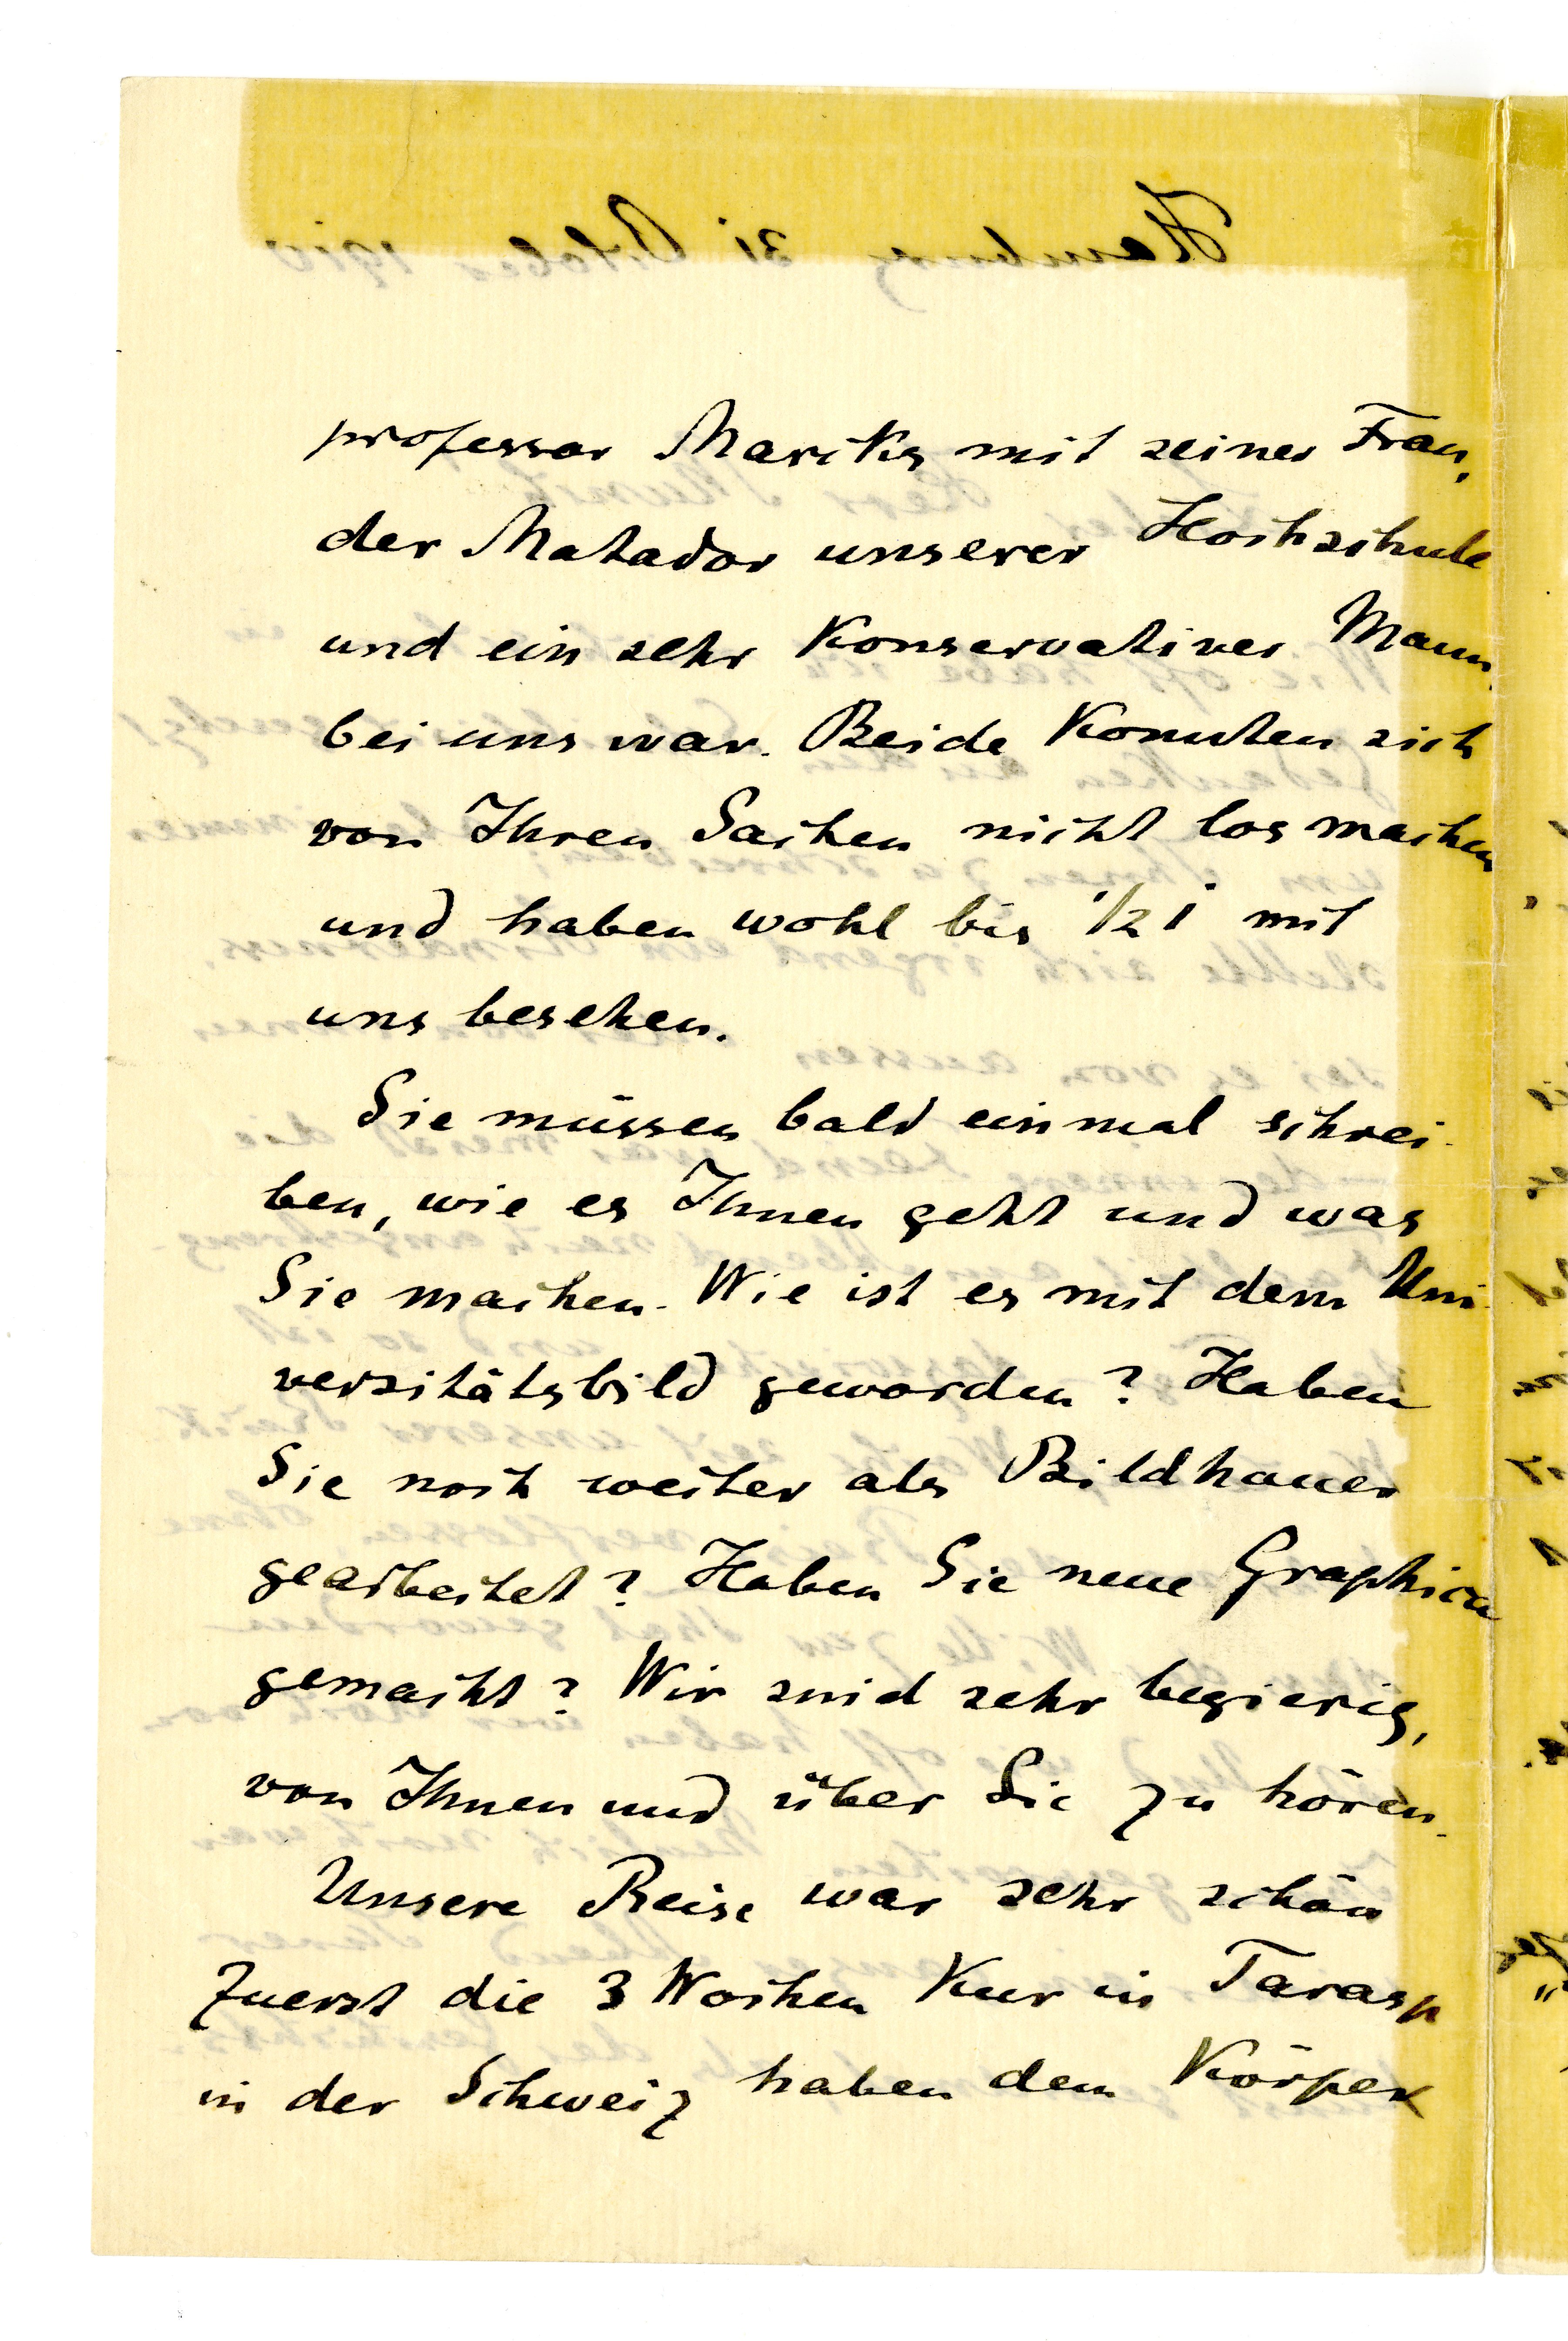 professor Marcks mit seiner Frau,
der Matador unserer Hochschule
und ein sehr konservativer Mann,
bei uns war. Beide konnten sich
von Ihren Sachen nicht los machen
und haben wohl bis 1/2 1 mit
uns besehen.
Sie müssen bald einmal schrei-
ben, wie es Ihnen geht und was
Sie machen. Wie ist es mit dem Uni-
versitätsbild geworden? Haben
Sie noch weiter als Bildhauer
gearbeitet? Haben Sie neue Graphica
gemacht? Wir sind sehr begierig,
von Ihnen und über Sie zu hören.
Unsere Reise war sehr schön
Zuerst die 3 Wochen Kur in Tarasp
in der Schweiz haben dem Körper